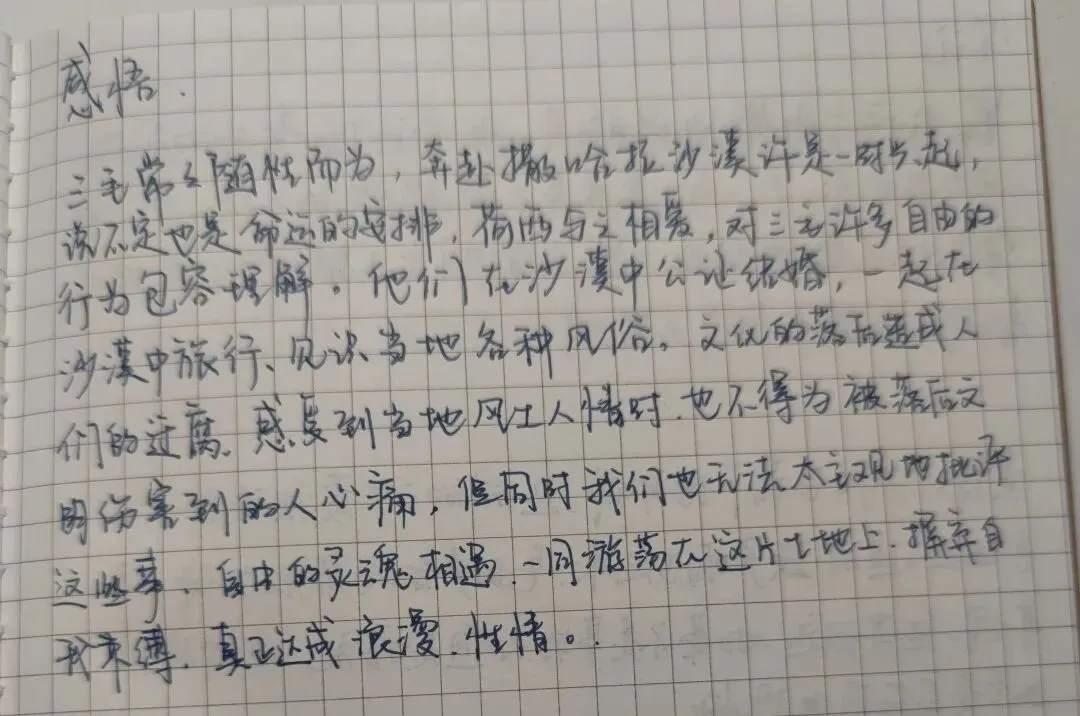 感悟.
三毛常常随性而为，奔赴撒哈拉沙漠许是一时兴起，
说不定也是命运的安排，荷西与之相爱，对三毛许多自由的
行为包容理解。他们在沙漠中公证结婚，一起在
沙漠中旅行、见识当地各种风俗。文化的落后造成人
们的迂腐、感受到当地风土人情时、也不得为被落后文
明伤害到的人心痛，但同时我们也无法太主观地批评
这些事、自由的灵魂相遇、一同游荡在这片土地上、摒弃自
我束缚、真正达成浪漫、性情。